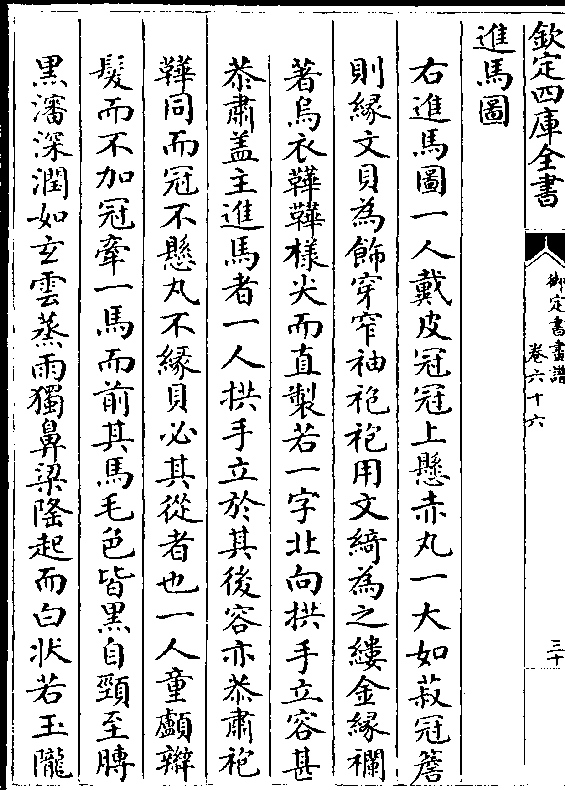 欽定四庫全書
御定書畫譜
卷六十六
三十
進馬圖
右進馬圖一人戴皮冠冠上懸赤丸一大如菽冠簷
則緣文貝為飾穿窄袖袍袍用文綺為之縷金緣襴
著烏衣鞾鞾様尖而直製若一字北向拱手立容甚
恭肅盖主進馬者一人拱手立於其後容亦恭肅袍
鞾同而冠不懸丸不緣貝必其從者也一人童顱辮
髮而不加冠牽一馬而前其馬毛色皆黑自頸至膊
黒瀋深潤如玄雲蒸雨獨鼻梁隆起而白状若玉隴